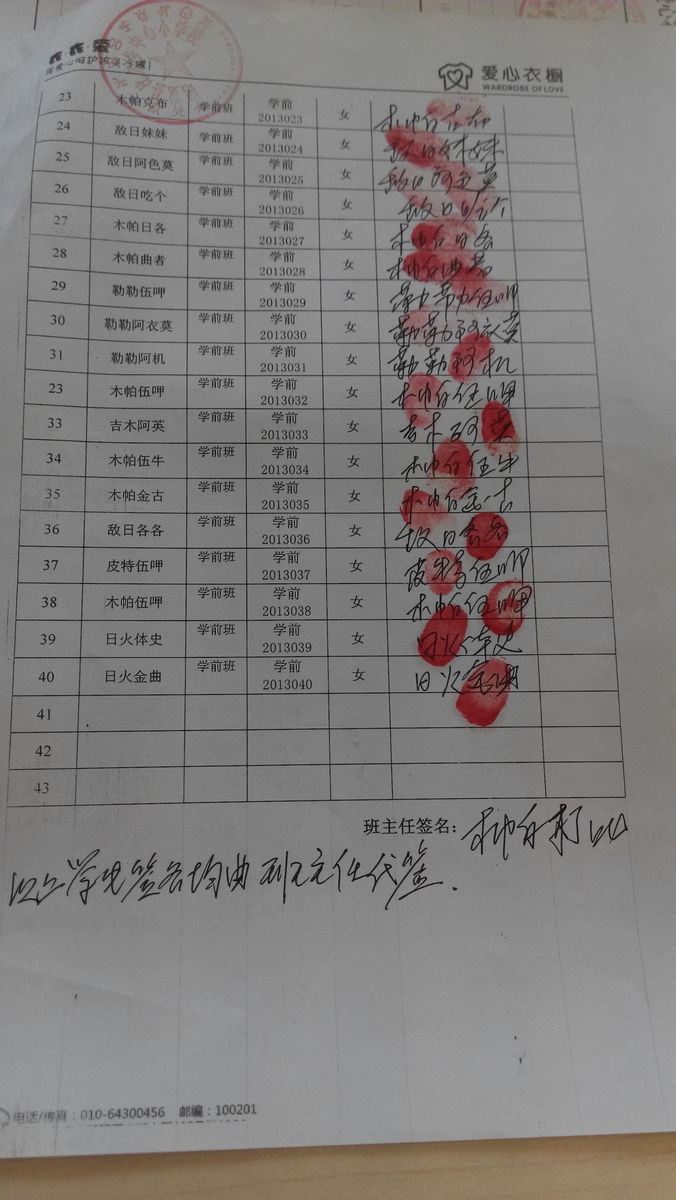 爱心衣橱
WARDROBE OF LOVE
23 木帕克布 学前班 学前2013023 女 木帕克布
24 敌日妹妹 学前班 学前2013024 女 敌日妹妹
25 敌日阿色莫 学前班 学前2013025 女 敌日阿色莫
26 敌日吃个 学前班 学前2013026 女 敌日吃个
27 木帕日各 学前班 学前2013027 女 木帕日各
28 木帕曲者 学前班 学前2013028 女 木帕曲者
29 勒勒伍呷 学前班 学前2013029 女 勒勒伍呷
30 勒勒阿衣莫 学前班 学前2013030 女 勒勒阿衣莫
31 勒勒阿机 学前班 学前2013031 女 勒勒阿机
23 木帕伍呷 学前班 学前2013032 女 木帕伍呷
33 吉木阿英 学前班 学前2013033 女 吉木阿英
34 木帕伍牛 学前班 学前2013034 女 木帕伍牛
35 木帕金古 学前班 学前2013035 女 木帕金古
36 敌日各各 学前班 学前2013036 女 敌日各各
37 皮特伍呷 学前班 学前2013037 女 皮特伍呷
38 木帕伍呷 学前班 学前2013038 女 木帕伍呷
39 日火体史 学前班 学前2013039 女 日火体史
40 日火金曲 学前班 学前2013040 女 日火金曲
41
42
43
班主任签名：木帕打
以上学生签名均由班主任代签.
电话/传真：010-64300456 邮编：100201